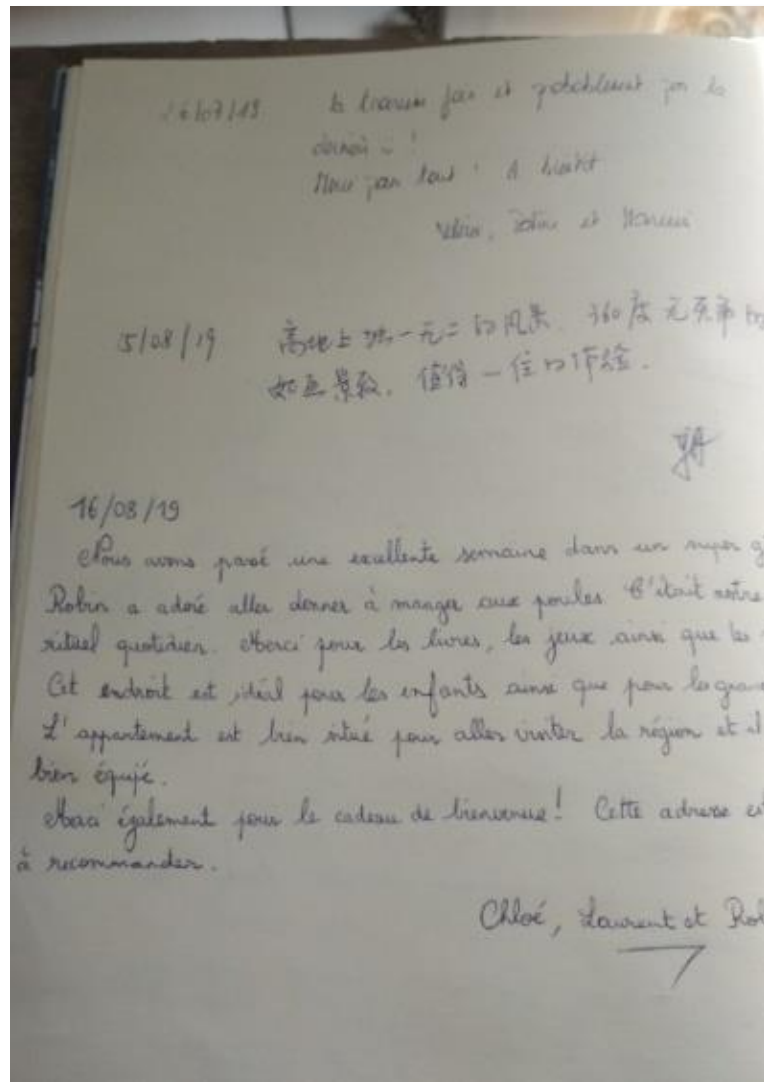 26/07/19 la troisième fois et probablement pas la
dernière !
Merci pour tout ! A bientôt
et
5/08/19 高地上独一无二的风景. 360度无死角的
如画景致. 值得一住的体验.
16/08/19
Nous avons passé une excellente semaine dans un super g
Robin a adoré aller donner à manger aux poules C'était notre
rituel quotidien. Merci pour les livres, les jeux ainsi que les
Cet endroit est idéal pour les enfants ainsi que pour les gran
L'appartement est bien situé pour aller visiter la région et il
bien équipé.
Merci également pour le cadeau de bienvenue! Cette adresse es
à recommander.
Chloé, Laurent et Rob